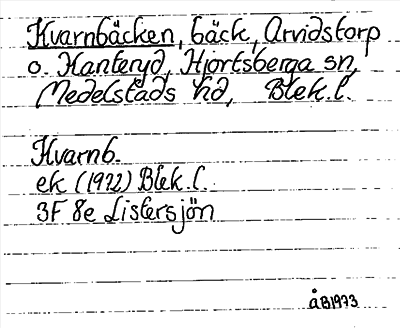 Kvarnbäcken, bäck, Arvidstorp
o. Hanteryd, Hjortsberga sn,
Medelstads hd, Blek.l.
Kvarnb.
ek (1922) Blek.l.
3F 8e Listersjön
ÅB1973